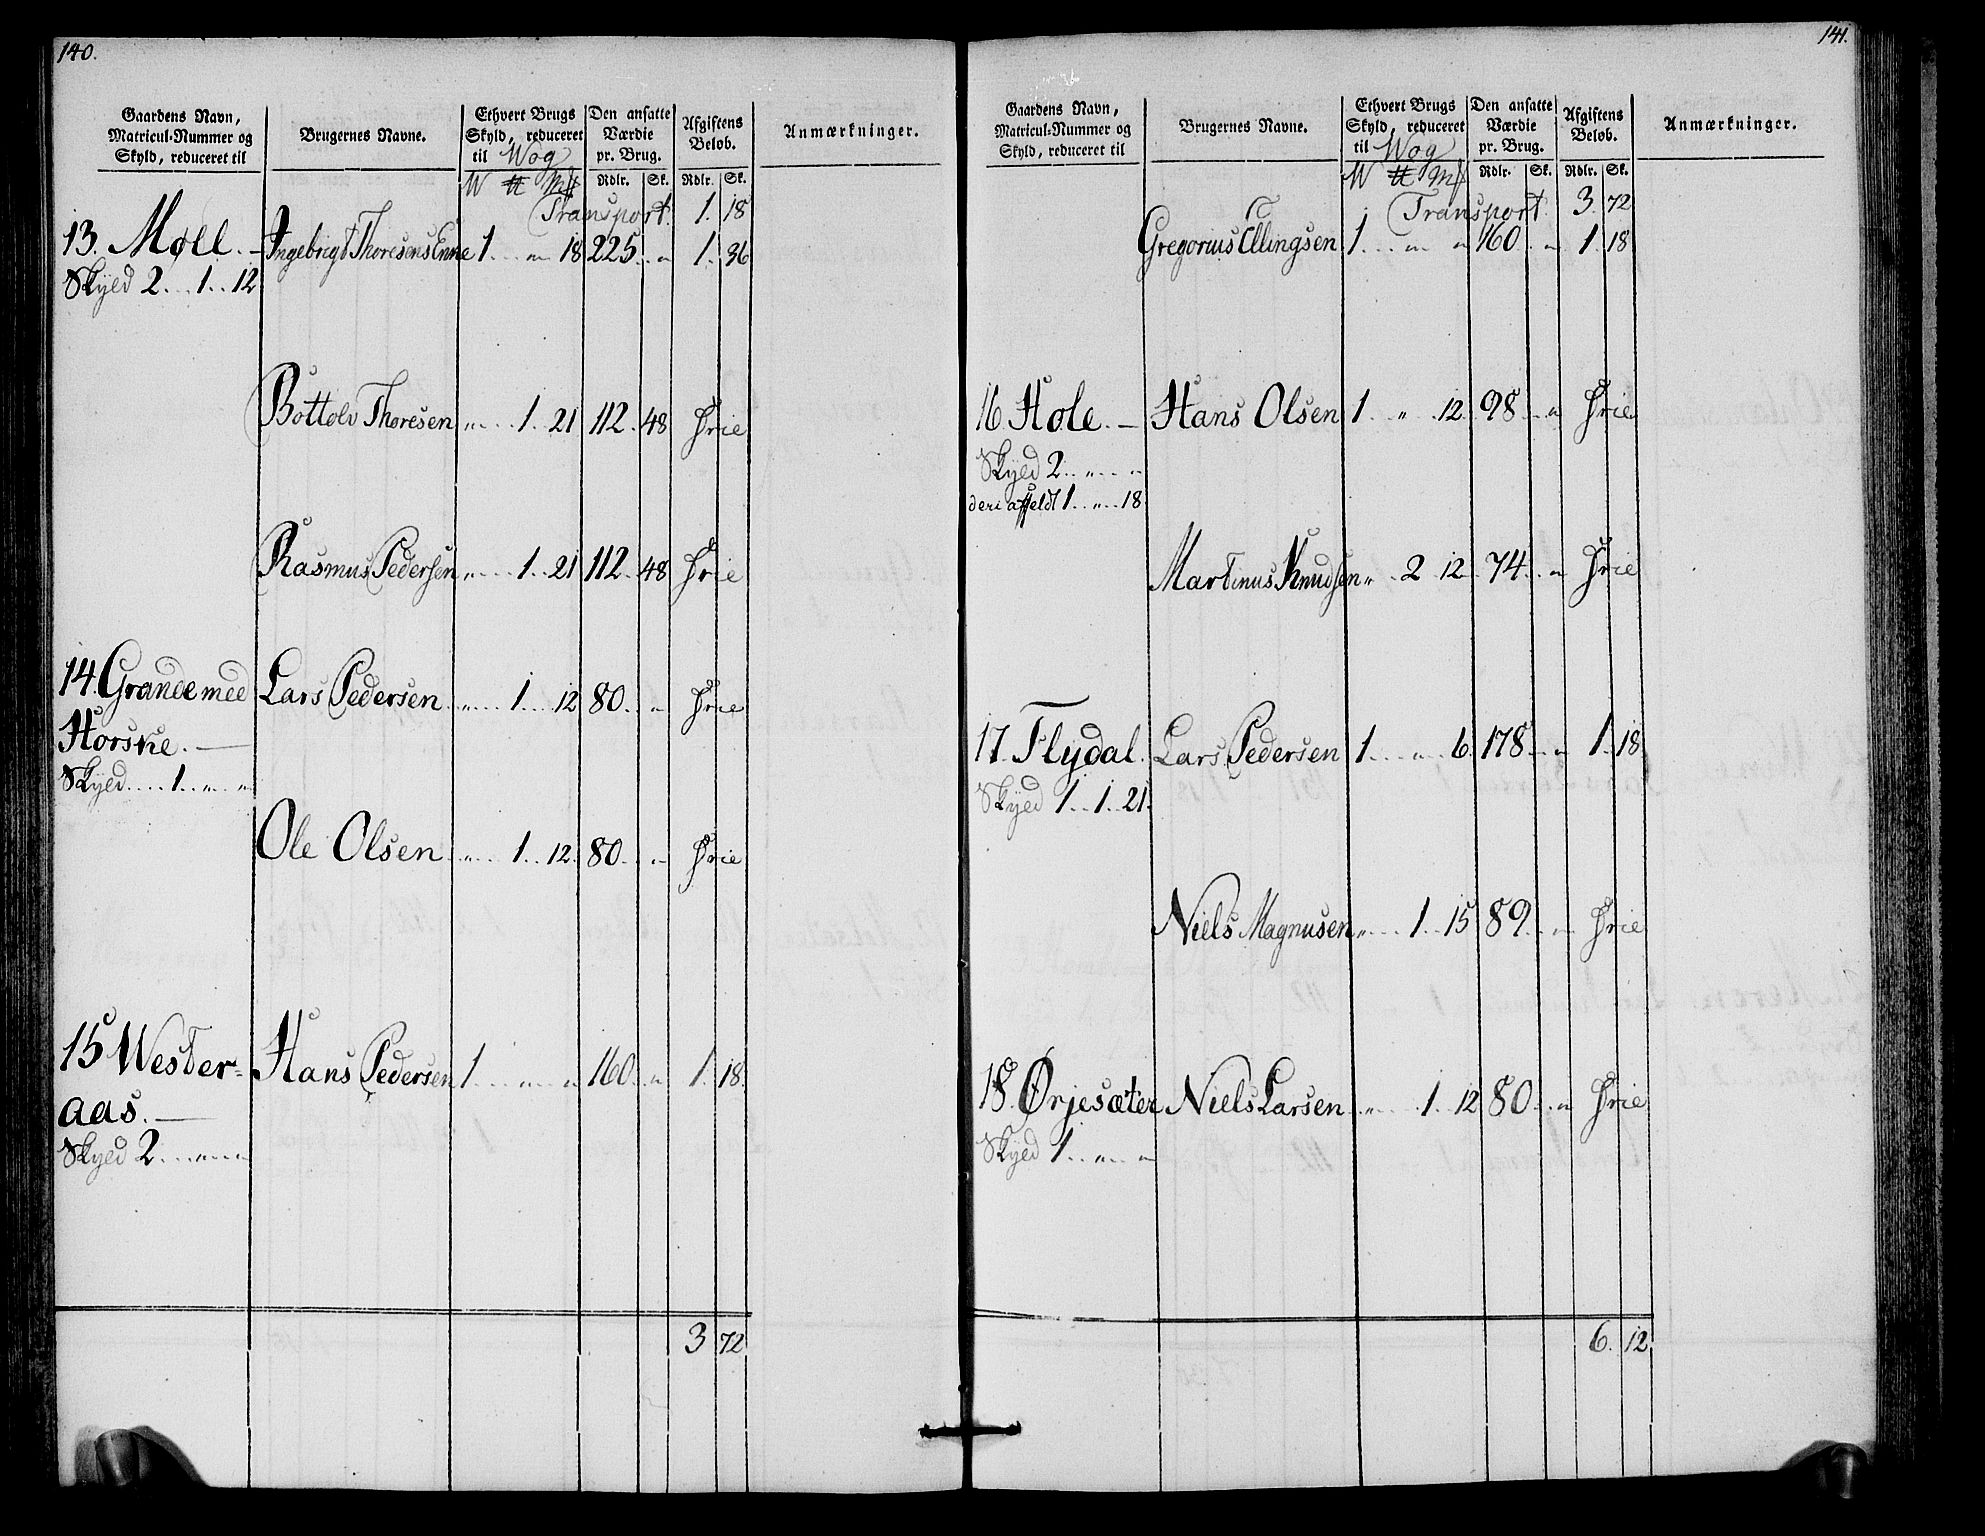 140.
Gaardens Navn, Matricul-Nummer og Skyld, reduceret til | Brugernes Navne. | Ethvert Brugs Skyld, reduceret til Wog | Den ansatte Værdie pr. Brug. | Afgiftens Beløb. | Anmærkninger.
W ℔ Mk | Rdlr. Sk. | Rdlr. Sk.
Transport 1. 18
13. Møll. Ingebrigt Thoresens Enne 1 .. „ 18 225 .. „ 1. 36
Skyld 2 .. 1 .. 12
Bottolv Thoresen „ .. 1 .. 21 112 .. 48 Frie
Rasmus Pedersen „ .. 1 .. 21 112 .. 48 Frie
14. Grande med Lars Pedersen „ .. 1 .. 12 80 .. „ Frie
Horske.
Skyld .... 1 .. „ „
Ole Olsen „ .. 1 .. 12 80 .. „ Frie
15 Wester= Hans Pedersen 1 .. „ „ 160 .. „ 1. 18.
aas.
Skyld 2 .. „ „
3 72
141.
Gaardens Navn, Matricul-Nummer og Skyld, reduceret til | Brugernes Navne. | Ethvert Brugs Skyld, reduceret til Wog | Den ansatte Værdie pr. Brug. | Afgiftens Beløb. | Anmærkninger.
W ℔ Mk | Rdlr. Sk. | Rdlr. Sk.
Transport 3. 72
Gregorius Ellingsen 1 .. „ „ 160 .. „ 1. 18
16 Hole. Hans Olsen 1 .. „ .. 12 98 .. „ Frie
Skyld 2 .. „ .. „
deri affeldt 1 .. „ .. 18
Martinus Knudsen „ .. 2 12 74 .. „ Frie
17. Flydal. Lars Pedersen 1 .. „ .. 6 178 .. „ 1. 18
Skyld 1 .. 1 .. 21.
Niels Magnusen „ .. 1 .. 15 89 .. „ Frie
18. Ørjesæter Niels Larsen „ .. 1 .. 12 80 .. „ Frie
Skyld 1 .. „ .. „
6. 12.